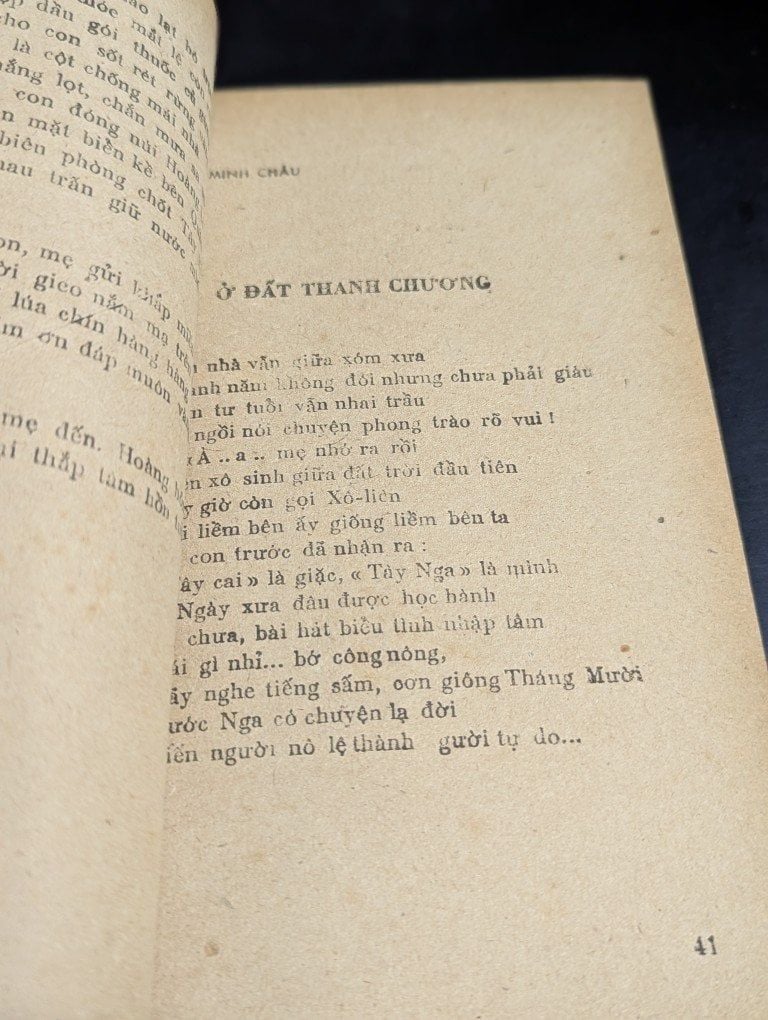 lạt bó
dầu gói thuốc
cho con sốt rét rừng
là cột chống mái nhà
nắng lọt, chắn mưa sa
con đóng núi Hoàng
mặt biển kề bên
biên phòng chốt
nhau trấn giữ nước
mẹ gửi khắp
gieo nắm mạ
lúa chín hàng hàng
ơn đáp muôn
mẹ đến. Hoàng
thắp tâm hồn
MINH CHÂU
Ở ĐẤT THANH CHƯƠNG
nhà vẫn giữa xóm xưa
năm không đói nhưng chưa phải giàu
tư tuổi vẫn nhai trầu
ngồi nói chuyện phong trào rõ vui !
À .. a .. mẹ nhớ ra rồi
xô sinh giữa đất trời đầu tiên
giờ còn gọi Xô-liên
liềm bên ấy giống liềm bên ta
con trước đã nhận ra :
cai » là giặc, « Tây Nga » là mình
Ngày xưa đâu được học hành
chưa, bài hát biểu tình nhập tâm
gì nhỉ... bớ công nông,
nghe tiếng sấm, cơn giông Tháng Mười
Nga có chuyện lạ đời
người nô lệ thành gười tự do...
41